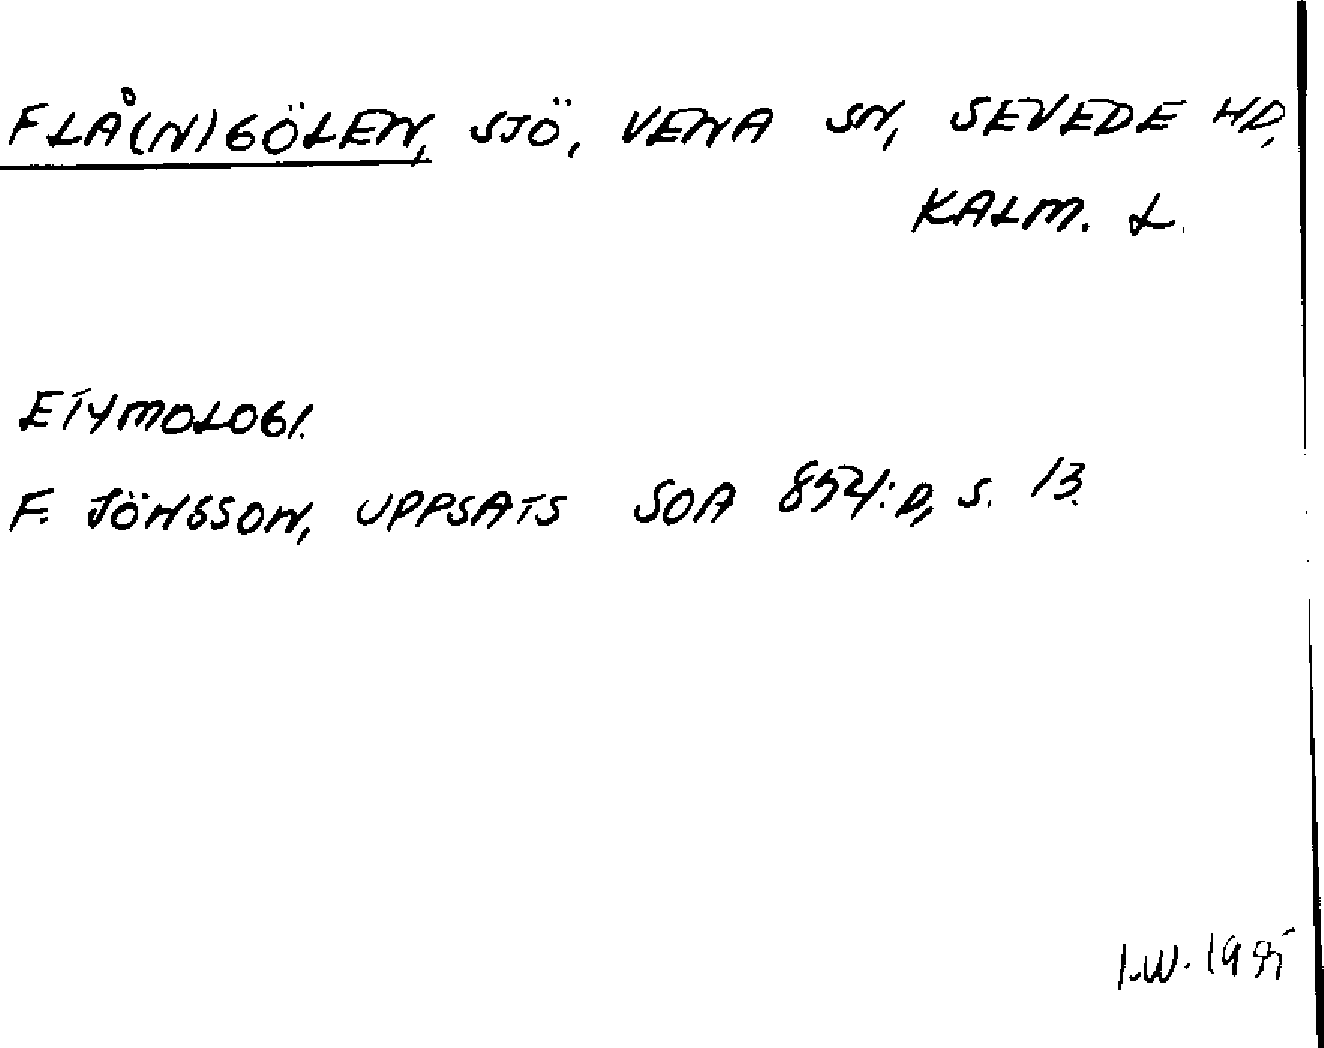 FLÅ(N)GÖLEN, SJÖ, VENA SN, SEVEDE HD,
KALM. L.
ETYMOLOGI.
F. JÖNSSON, UPPSATS SOA 854:D, S. 13.
I.W.